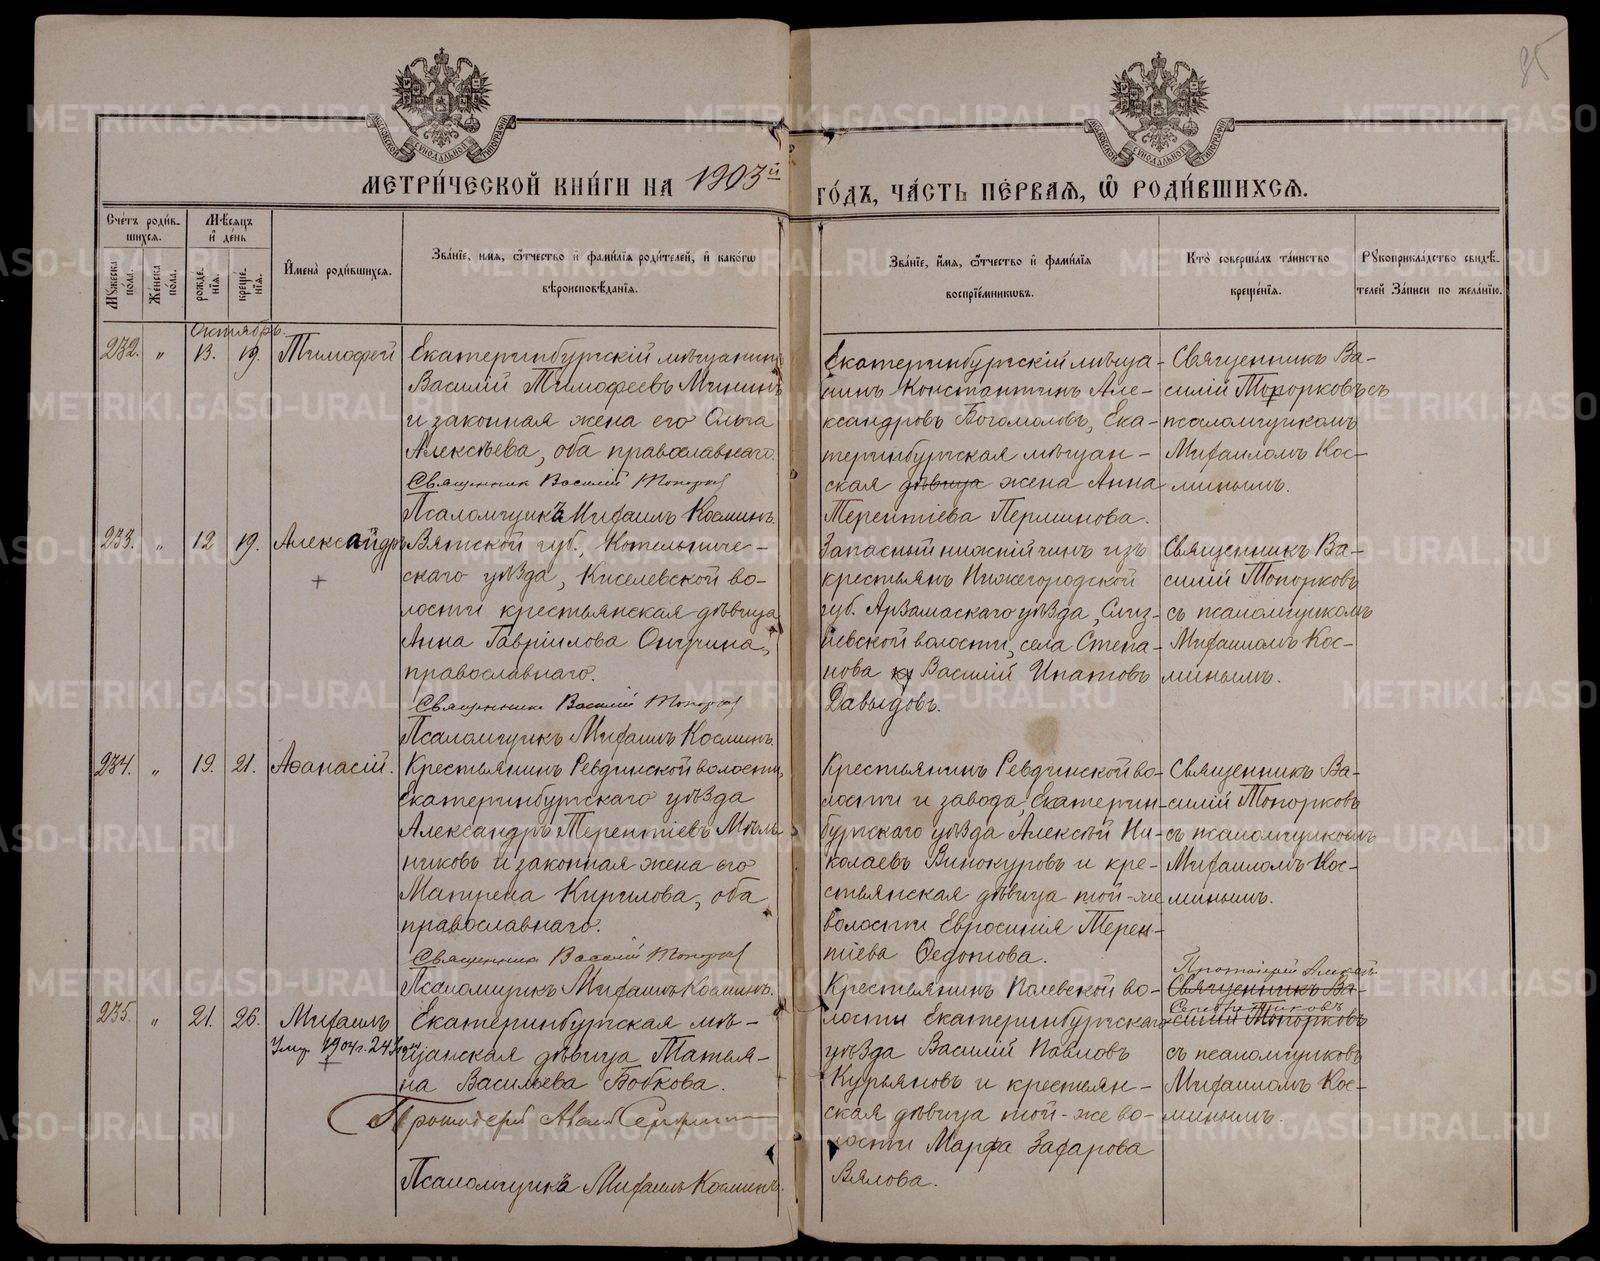 85
МОСКОВСКОЙ СѴНОДАЛЬНОЙ ТИПОГРАФІИ
МОСКОВСКОЙ СѴНОДАЛЬНОЙ ТИПОГРАФІИ
МЕТРИ́ЧЕСКОЙ КНИ́ГИ НА 1903й ГО́ДЪ, ЧА́СТЬ ПЕ́РВАЯ, Ѡ РОДИ́ВШИХСЯ.
Сче́тъ роди́в-
шихся.
Мѣ́сяцъ
и де́нь
Мꙋжеска пола.
Же́нска пола.
рожде́нїѧ.
креще́нїѧ.
Имена̀ роди́вшихся.
Зва́нїе, имѧ, ѻтчество и фами́лїѧ роди́телей, и како́гѡ
вѣроисповѣ́данїѧ.
Зва́нїе, и́мѧ, ѻтчество и фами́лїѧ
воспрїе́мникѡвъ.
Кто̀ соверша́лъ та́инство
креще́нїѧ.
Рꙋкоприкла́дство свидѣ́-
телей за́писи по жела́нїю.
Октябрь.
232. " 13. 19. Тимофей
Екатеринбургскій мѣщанинъ
Василій Тимофеевъ Мининъ
и законная жена его Ольга
Алексѣева, оба православнаго.
Священникъ Василій Топорков
Псаломщикъ Михаилъ Косминъ.
Екатеринбургскій мѣща-
нинъ Константинъ Але-
ксандровъ Богомоловъ, Ека-
теринбургская мѣщан-
ская дѣвица жена Анна
Терентіева Перминова.
Священникъ Ва-
силій Топорковъ съ
псаломщикомъ
Михаиломъ Кос-
минымъ.
233. " 12 19. Александръ
+
Вятской губ., Котельниче-
скаго уѣзда, Киселевской во-
лости крестьянская дѣвица
Анна Гавріилова Онучина,
православнаго.
Священникъ Василій Топорков
Псаломщикъ Михаилъ Косминъ.
Запасный нижній чинъ изъ
крестьянъ Нижегородской
губ. Арзамаскаго уѣзда, Слиз-
невской волости, села Степа-
нова Василій Ипатовъ
Давыдовъ.
Священникъ Ва-
силій Топорковъ
съ псаломщикомъ
Михаиломъ Кос-
минымъ.
234. " 19. 21. Аѳанасій.
Крестьянинъ Ревдинской волости,
Екатеринбургскаго уѣзда
Александръ Терентіевъ Мѣль-
никовъ и законная жена его
Матрена Кирилова, оба
православнаго.
Священникъ Василій Топорков
Псаломщикъ Михаилъ Косминъ.
Крестьянинъ Ревдинской во-
лости и завода, Екатерин-
бургскаго уѣзда Алексѣй Ни-
колаевъ Винокуровъ и кре-
стьянская дѣвица той-же
волости Евросинія Терен-
тіева Ѳедотова.
Священникъ Ва-
силій Топорковъ
съ псаломщикомъ
Михаиломъ Кос-
минымъ.
235. " 21. 26. Михаилъ
Умер 1904 г. 24
+
Екатеринбургская мѣ-
щанская дѣвица Татья-
на Васильева Бобкова.
Протоіерей
Псаломщикъ Михаилъ Косминъ.
Крестьянинъ Полевской во-
лости Екатеринбургскаго
уѣзда Василій Павловъ
Курьяновъ и крестьян-
ская дѣвица той-же во-
лости Марфа Захарова
Вялова.
Протоіерей
Священникъ Ва-
силій Топорковъ
съ псаломщиковъ
Михаиломъ Кос-
минымъ.
METRIKI.GASO-URAL.RU